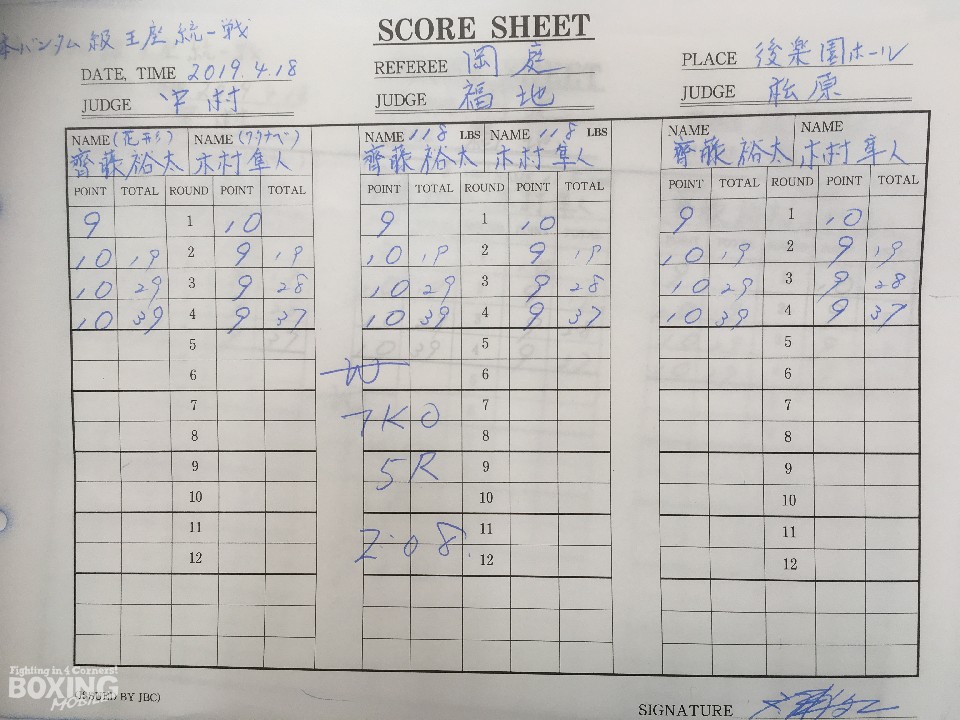 SCORE SHEET
本バンタム級王座統一戦
DATE, TIME 2019.4.18 REFEREE 岡庭 PLACE 後楽園ホール
JUDGE 中村 JUDGE 福地 JUDGE 松原
NAME (花形) NAME (ワタナベ) NAME 118 LBS NAME 118 LBS NAME NAME
齊藤裕太 木村隼人 齊藤裕太 木村隼人 齊藤裕太 木村隼人
POINT TOTAL ROUND POINT TOTAL POINT TOTAL ROUND POINT TOTAL POINT TOTAL ROUND POINT TOTAL
9 1 10 9 1 10 9 1 10
10 19 2 9 19 10 19 2 9 19 10 19 2 9 19
10 29 3 9 28 10 29 3 9 28 10 29 3 9 28
10 39 4 9 37 10 39 4 9 37 10 39 4 9 37
5 5 5
6 W 6 6
7 TKO 7 7
8 8 8
9 5R 9 9
10 10 10
11 2:08 11 11
12 12 12
Fighting in 4 Corners!
BOXING
MOBILE
ISSUED BY JBC)
SIGNATURE